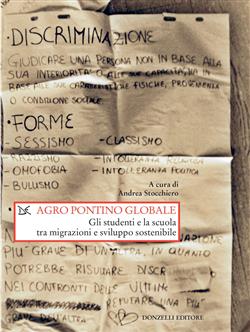 • DISCRIMINAZIONE
GIUDICARE UNA PERSONA NON IN BASE ALLA
SUA INTERIORITÀ O ALLE SUE CAPACITÀ, MA IN
BASE ALLE SUE CARATTERISTICHE FISICHE, PROVENIENZA
O CONDIZIONE SOCIALE.
• FORME
- SESSISMO
- CLASSISMO
- RAZZISMO
- INTOLLERANZA RELIGIOSA
- OMOFOBIA
- INTOLLERANZA POLITICA
- BULLISMO
A cura di
Andrea Stocchiero
AGRO PONTINO GLOBALE
Gli studenti e la scuola
tra migrazioni e sviluppo sostenibile
PIÙ GRAVE DI UN'ALTRA, IN QUANTO
POTREBBE RISULTARE
NEI CONFRONTI DELLE
UNA PIÙ
GRAVE DELL'ALTRA
DONZELLI EDITORE